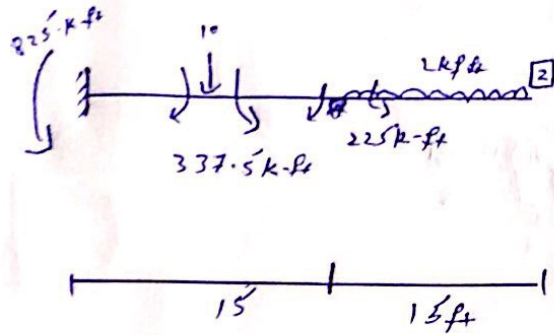 825 k-ft
10
2kfft
2
337.5 k-ft
225k-ft
15
15ft